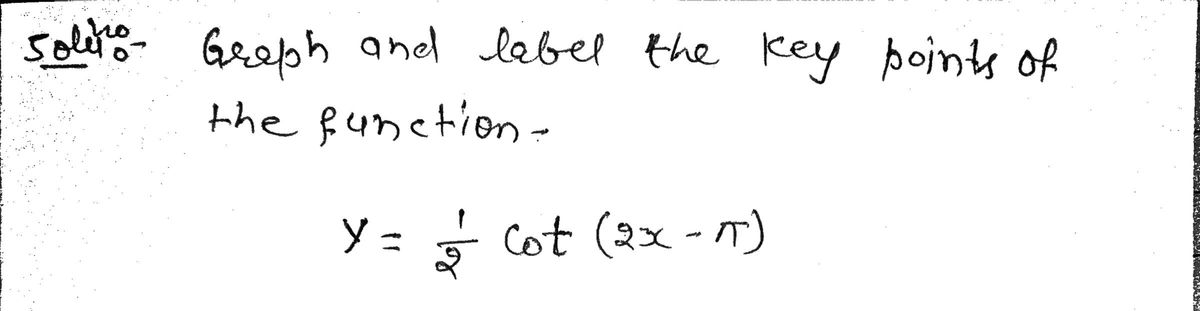 Solution- Graph and label the key points of
the function-
y = 1/2 cot (2x - π)